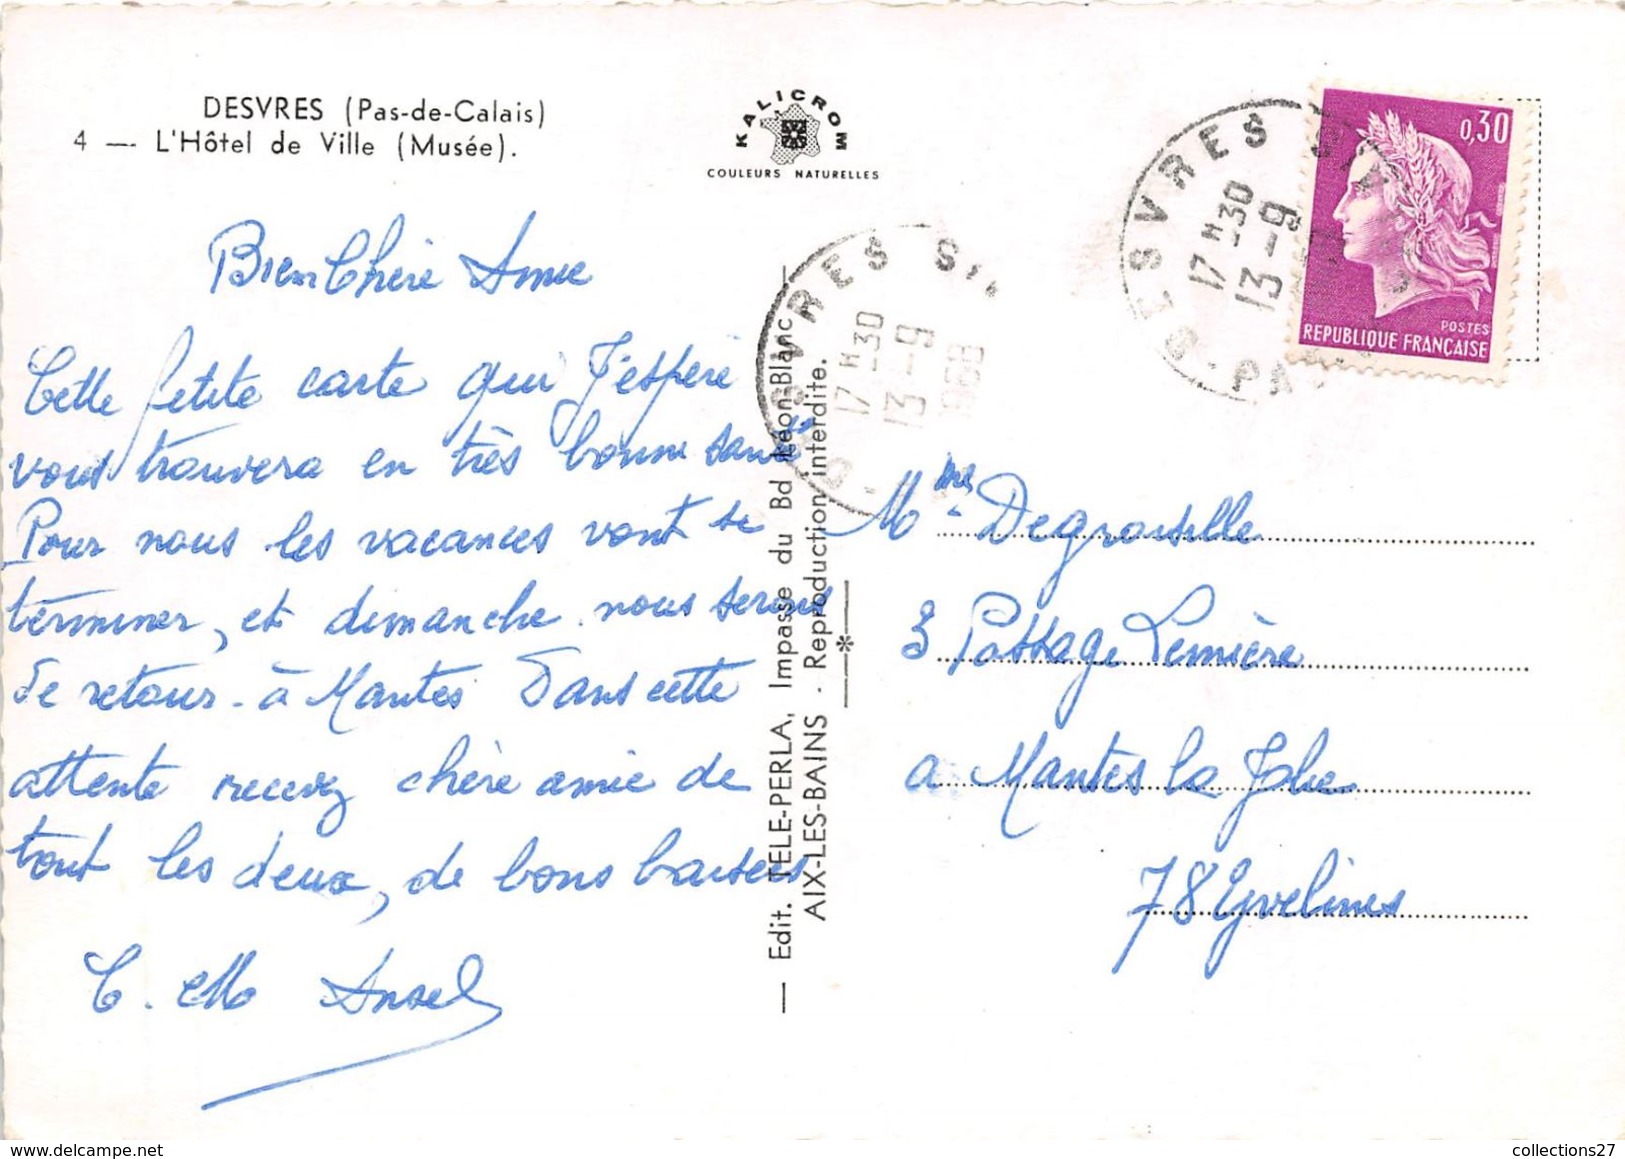 DESVRES (Pas-de-Calais)
4 — L'Hôtel de Ville (Musée).
KALICROM
COULEURS NATURELLES
Bien Chère Amie
Cette petite carte qui J'espère
vous trouvera en très bonne santé
Pour nous les vacances vont se
terminer, et dimanche nous serons
de retour à Mantes Dans cette
attente recevez chère amie de
tout les deux, de bons baisers
C. M Ansel
— Edit. TELE-PERLA, Impasse du Bd Léon-Blanc —
AIX-LES-BAINS - Reproduction interdite.
DESVRES
17 H 30
13 - 9
1968
DESVRES
17 H 30
13 - 9
0,30
POSTES
REPUBLIQUE FRANÇAISE
Mme Degrouselle
3 Passage Lemière
a Mantes la Jolie
78 Yvelines
collections27